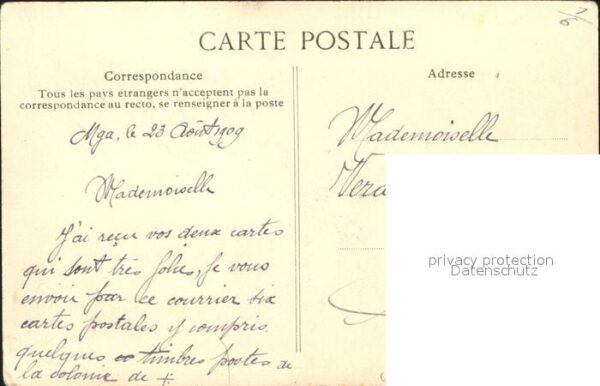 CARTE POSTALE
Correspondance
Tous les pays étrangers n'acceptent pas la
correspondance au recto, se renseigner à la poste
Adresse
Mga, le 23 Août 1909
Mademoiselle
J'ai reçu vos deux cartes
qui sont très jolies, Je vous
envoir par ce courrier six
cartes postales y compris
quelques timbres postes de
la colonie de +
Mademoiselle
Vera
privacy protection
Datenschutz